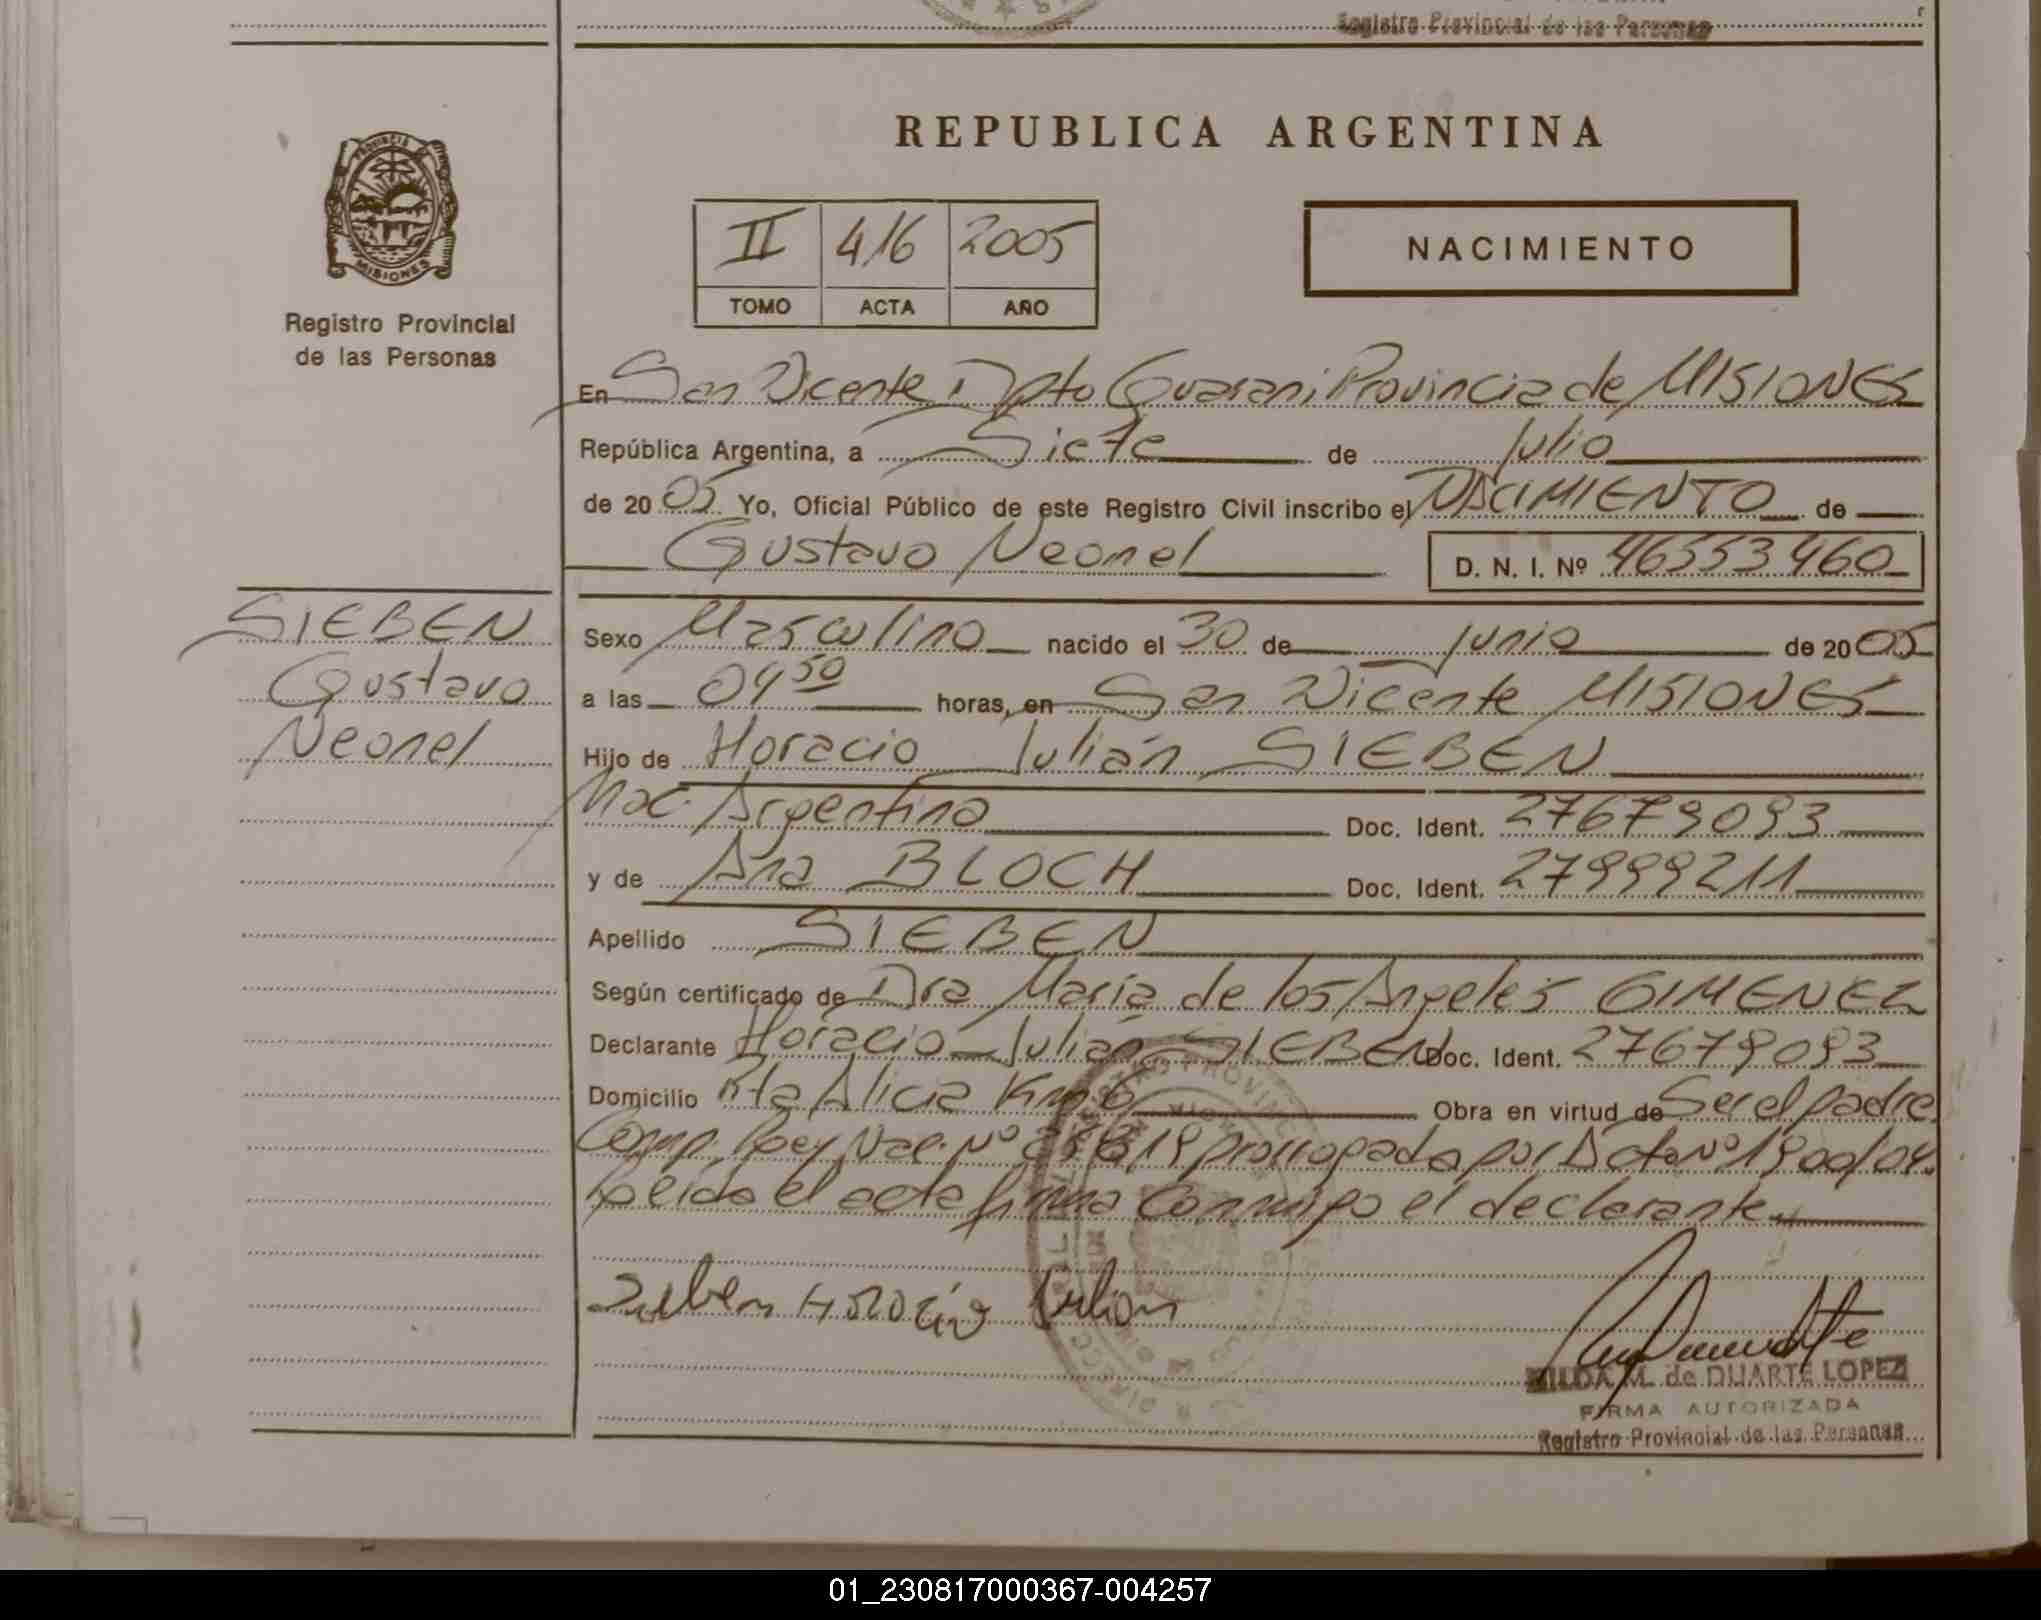 Registro Provincial de las Personas
REPUBLICA ARGENTINA
PROVINCIA DE
MISIONES
Registro Provincial
de las Personas
II 416 2005
TOMO ACTA AÑO
NACIMIENTO
En San Vicente Dpto Guarani Provincia de MISIONES
República Argentina, a Siete de Julio
de 2005 Yo, Oficial Público de este Registro Civil inscribo el NACIMIENTO de
Gustavo Neonel D. N. I. Nº 46553460
SIEBEN
Gustavo
Neonel
Sexo Masculino nacido el 30 de junio de 2005
a las 04 50 horas, en San Vicente MISIONES
Hijo de Horacio Julián SIEBEN
Nac. Argentina Doc. Ident. 27679093
y de Ana BLOCH Doc. Ident. 27999211
Apellido SIEBEN
Según certificado de Dra María de los Angeles GIMENEZ
Declarante Horacio Julián SIEBEN Doc. Ident. 27679093
Domicilio Pta Alicia Km 6 Obra en virtud de Ser el padre
Nac. Nº prorrogada por Dcto Nº 1900/04
Leída el acta firma conmigo el declarante
Sieben Horacio Julian
HILDA M. de DUARTE LOPEZ
FIRMA AUTORIZADA
Registro Provincial de las Personas
01_230817000367-004257